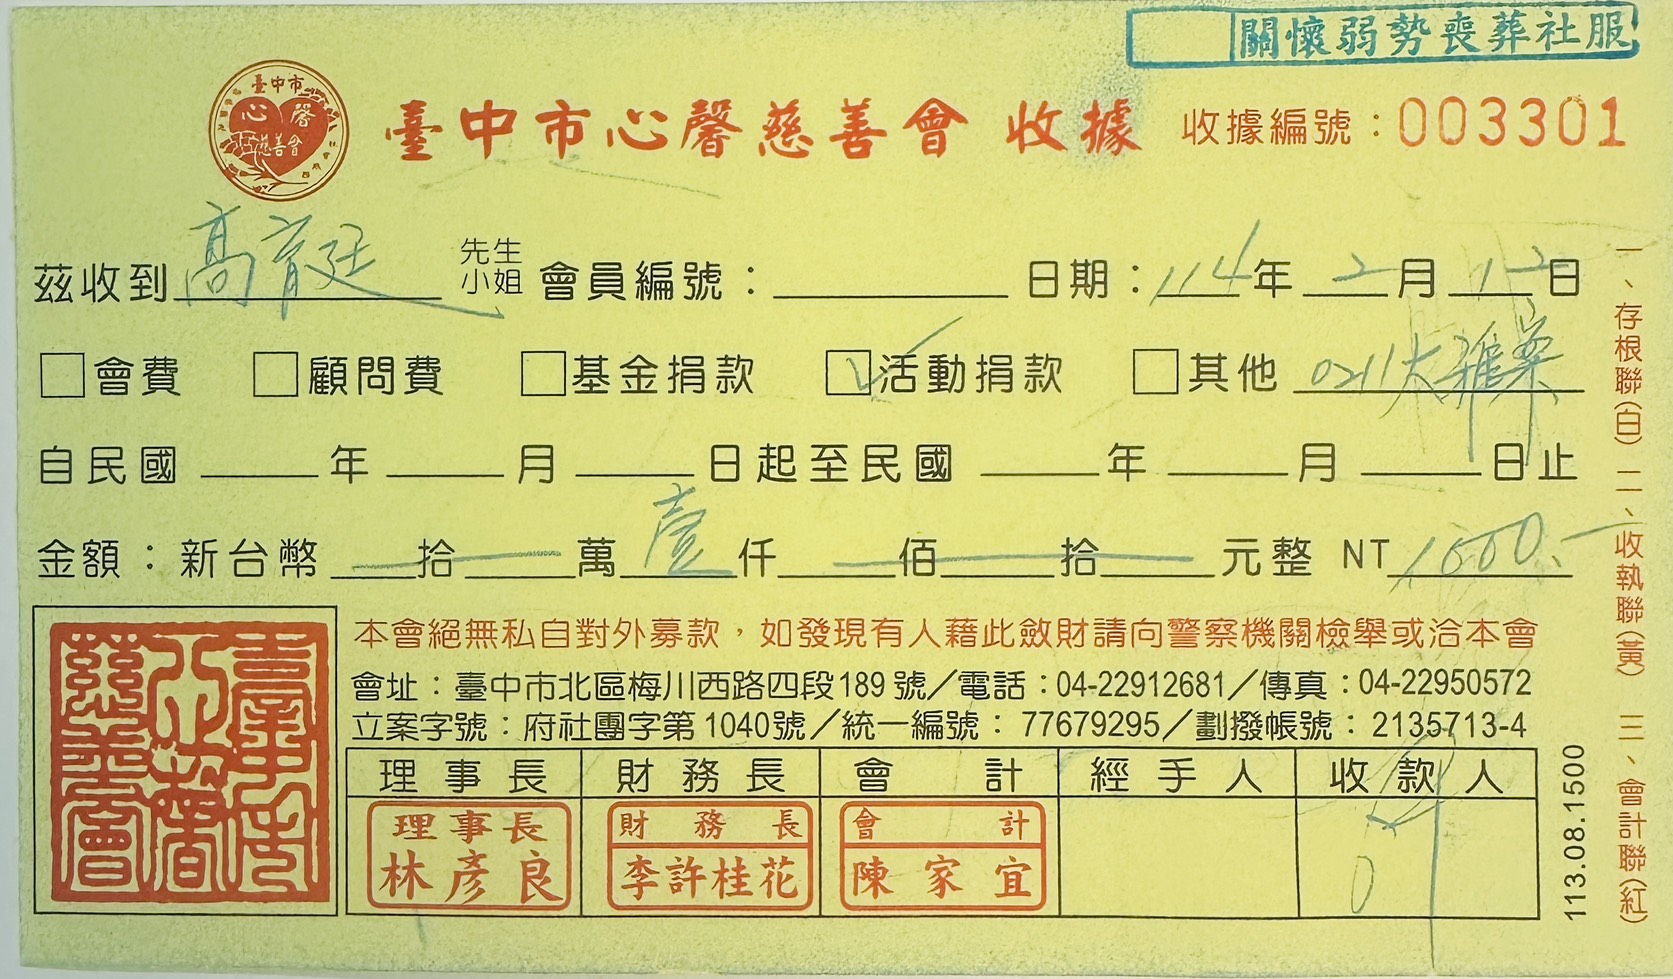 關懷弱勢喪葬社服
臺中市
心馨
慈善會
臺中市心馨慈善會 收據 收據編號：003301
茲收到高育廷 先生小姐 會員編號： 日期：114年2月12日
會費 顧問費 基金捐款 活動捐款 其他 0211大雅案
自民國 年 月 日起至民國 年 月 日止
金額：新台幣 拾 萬壹仟 佰 拾 元整 NT 1000.-
臺中市心馨慈善會
本會絕無私自對外募款，如發現有人藉此斂財請向警察機關檢舉或洽本會
會址：臺中市北區梅川西路四段189號／電話：04-22912681／傳真：04-22950572
立案字號：府社團字第1040號／統一編號：77679295／劃撥帳號：2135713-4
理事長 財務長 會計 經手人 收款人
理事長 財務長 會計
林彥良 李許桂花 陳家宜
一、存根聯（白）二、收執聯（黃）三、會計聯（紅）
113.08.1500